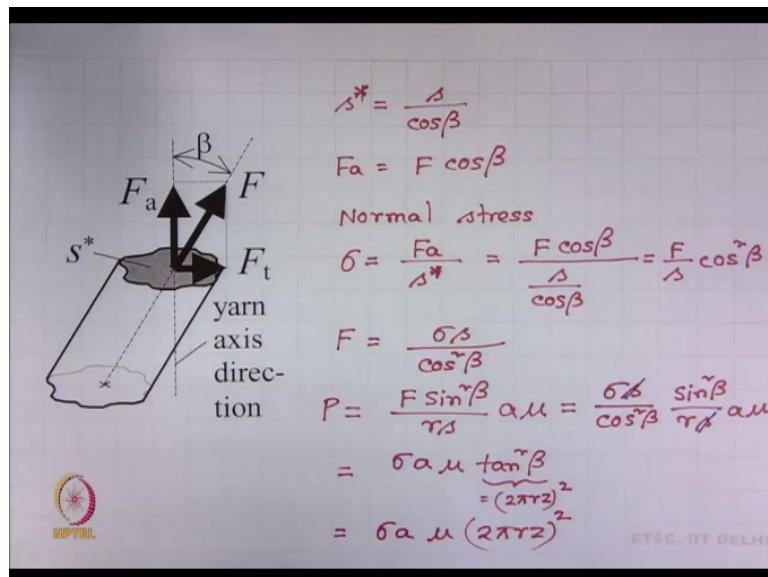 β
F_a F
s* F_t
yarn
axis
direc-
tion
s* = s / cosβ
Fa = F cosβ
Normal stress
σ = Fa / s* = F cosβ / (s / cosβ) = F/s cos²β
F = σs / cos²β
P = F sin²β / rs aμ = σs / cos²β sin²β / rs aμ
= σ a μ tan²β
= (2πrz)²
= σ a μ (2πrz)²
NPTEL
ETSC, IIT DELH